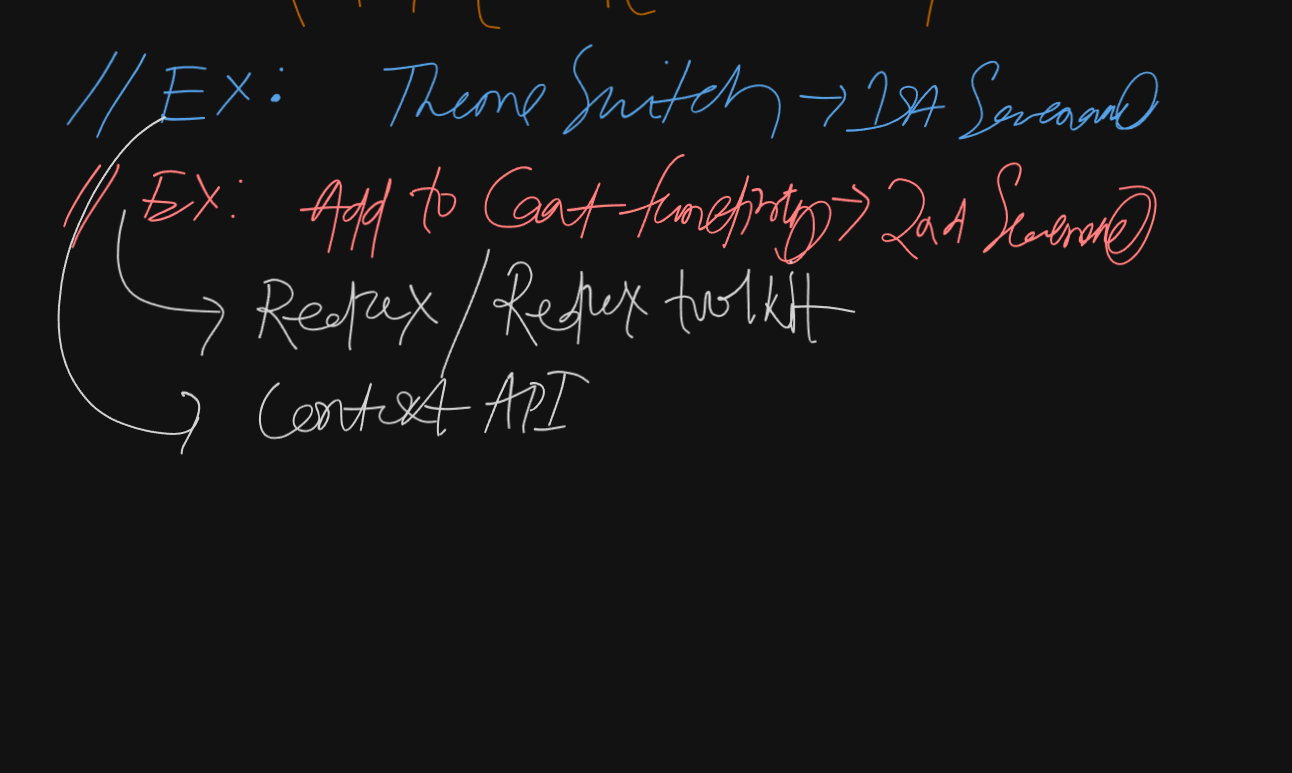 // EX: Theme Switch → 1st Scenario
// EX: Add to Cart functionality → 2nd Scenario
→ Redux / Redux toolkit
→ Context API